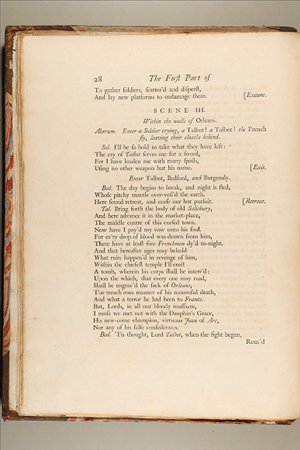 28 The First Part of
To gather soldiers, scatter'd and disperst,
And lay new platforms to endamage them. [Exeunt.
SCENE III.
Within the walls of Orleans.
Alarum. Enter a Soldier crying, a Talbot! a Talbot! the French
fly, leaving their cloaths behind.
Sol. I'll be so bold to take what they have left:
The cry of Talbot serves me for a sword,
For I have loaden me with many spoils,
Using no other weapon but his name. [Exit.
Enter Talbot, Bedford, and Burgundy.
Bed. The day begins to break, and night is fled,
Whose pitchy mantle over-veil'd the earth.
Here sound retreat, and cease our hot pursuit. [Retreat.
Tal. Bring forth the body of old Salisbury,
And here advance it in the market-place,
The middle centre of this cursed town.
Now have I pay'd my vow unto his soul.
For ev'ry drop of blood was drawn from him,
There have at least five Frenchmen dy'd to-night.
And that hereafter ages may behold
What ruin happen'd in revenge of him,
Within the chiefest temple I'll erect
A tomb, wherein his corps shall be interr'd:
Upon the which, that every one may read,
Shall be engrav'd the sack of Orleans,
The treach'rous manner of his mournful death,
And what a terror he had been to France.
But, Lords, in all our bloody massacre,
I muse we met not with the Dauphin's Grace,
His new-come champion, virtuous Joan of Arc,
Nor any of his false confederates.
Bed. 'Tis thought, Lord Talbot, when the fight began,
Rous'd